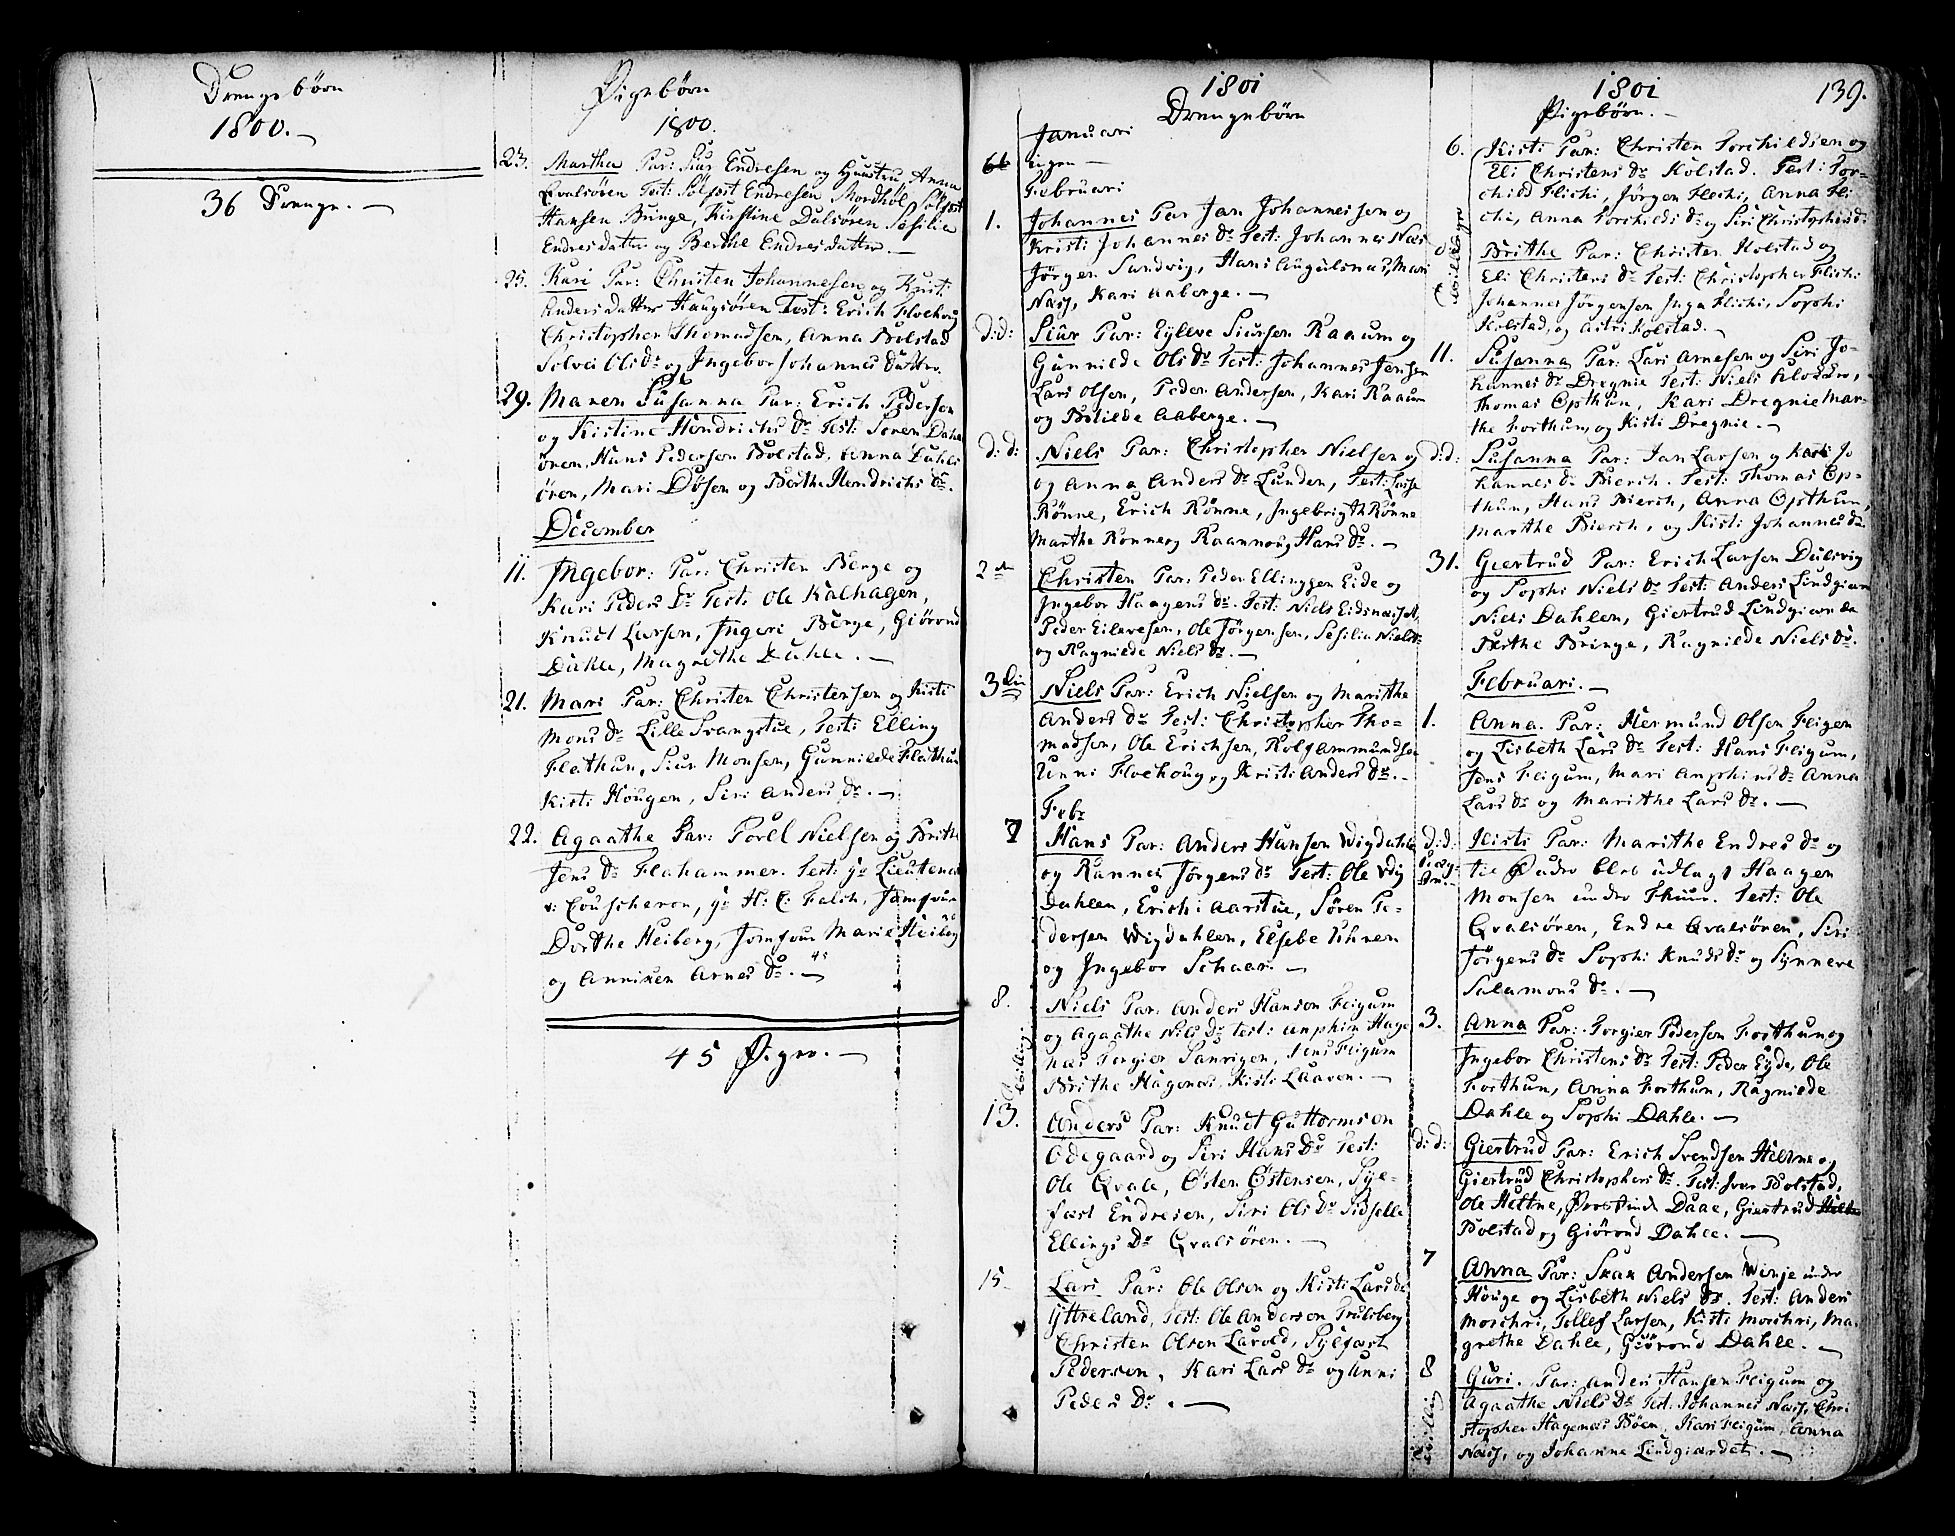 Drengebörn
1800.
36 Drenge.
Pigebörn
1800.
23. Martha Par: Siur Endresen og Hustru Anna
Qvalsören Test: Sölfest Endresen Mordhöl, Sölfest
Hansen Bringe, Kirstine Dalsören Sesilia
Endresdatter og Berthe Endresdatter.
25. Kari Par: Christen Johannesen og Kristi
Andersdatter Haugsören Test: Erich Floehoug
Christopher Thomassen, Anna Bolstad
Solvei Olsdr og Ingebor Johannes Datter.
29. Maren Susanna Par: Erich Pedersen
og Kistine Hendrichs dr Test: Søren Dahls
ören, Hans Pedersen Bolstad, Anna Dahls
ören, Mari Dösen og Berthe Hendrichs dr.
December
11. Ingebor: Par: Christen Berge og
Kari Peders Dr Test: Ole Kalhagen,
Knud Larsen, Ingeri Berge, Giörond
Dahle, Magrethe Dahle.
21. Mari Par: Christen Christensen og Kisti
Mons dr Lille Svangstue, Test: Elling
Flathun, Siur Monsen, Gunnilde Flathun
Kisti Hougen, Siri Anders dr.
22. Agaathe Par: Poul Nielsen og Brithe
Jens dr Flahammer. Test: Lieutenant
v: Couscheron, H: C: Falch, Jomfrue
Dorthe Heiberg, Jomfrue Marie Heiberg
og Anniken Arnes dr. 45
45 Piger.
1801
Drengebörn
Januari
ingen
Februari
1. Johannes Par Jan Johannessen og
Kristi Johannes dr Test: Johannes Næss
Jörgen Sandvig, Hans Augulsnæs, Mari
Næss, Kari Aaberge.
d:d: Siur Par: Eyleve Siursen Raaum og
Gunnilde Ols dr Test: Johannes Jensen
Lars Olsen, Peder Andersen, Kari Raaum
og Botilde Aaberge.
d:d: Niels Par: Christopher Nielsen og
og Anna Anders dr Lunden, Test: Lasse
Rönne, Erich Rönne, Ingebrigth Rönne
Marthe Rönne og Raannoug Hans dr.
2den Christen Par: Peder Ellingsen Eide og
Ingebor Haagens dr. Test: Niels Eidsnæset,
Peder Eilevesen, Ole Jörgensen, Sesilia Niels dr
og Ragnilde Niels dr.
3die Niels Par: Erich Nielsen og Marithe
Anders dr Test: Christopher Tho-
massen, Ole Erichsen, Rolf Ammundsen
Unni Floehoug og Kristi Anders dr.
Febr
7 Hans Par: Anders Hansen Wigdahlen
og Rannei Jörgens dr Test: Ole Wig
Dahlen, Erich Aarstue, Sören Pe-
dersen Wigdahlen, Elsebe Lihnen
og Ingebor Schaar.
8. Niels Par: Anders Hanson Feigum
og Agaathe Nils dr Test: Anphin Hage
næs Torgier Sanrigen, Jens Feigum
Brithe Hagenæs, Kisti Laaven.
Tvilling
13. Anders Par: Knud Guttormson
Ödegaard og Siri Hans dr Test:
Ole Qvale, Östen Östensen, Syl-
fæst Endresen, Siri Ols dr Sidselle
Ellings Dr Qvalsören.
15. Lars Par: Ole Olsen og Kisti Lars dr
Yttreland, Test: Ole Anderson Trulsberg
Christen Olsen Lavold, Sylfæst
Pederson, Kari Lars dr og Unni
Peders Dr.
1801
Pigebörn.
139.
6. Kisti Par: Christen Torchildsen og
Eli Christens dr Kolstad. Test: Tor-
child Flichi, Jörgen Flechi, Anna Fli
chi, Anna Torchilds dr og Siri Christophers dr
Brithe Par: Christen Kolstad og
Eli Christens dr Test: Christopher Flichi
Johannes Jörgensen Inga Flichi, Sophi
Kolstad, og Astri Kolstad.
11. Susanna Par: Lars Arnesen og Siri Jo-
hannes dr Dregnie Test: Niels Klokker,
Thomas Opthun, Kari Dregnie Mar-
the Forthun, og Kisti Dregnie.
d:d: Susanna Par: Jan Larsen og Kari Jo
hannes dr Biersh. Test: Thomas Op-
thun, Hans Biersh, Anna Opthun,
Marthe Biersh, og Kisti Johannes dr
31. Giertrud Par: Erich Larsen Dulsvig
og Sophi Niels dr Test: Anders Lindgiærde
Niels Dahlen, Giertrud Lindgiærde
Berthe Bringe, Ragnilde Niels dr.
Februari.
1. Anna. Par: Hermund Olsen Feigen
og Lisbeth Lars dr Test: Hans Feigum,
Jens Feigum, Mari Anphins dr Anna
Lars dr og Marithe Lars dr.
d:d: Kisti Par: Marithe Endres dr og
til Fader blev udlagt Haagen
Monsen Test: Ole
Qvalsören, Endre Qvalsören, Siri
Jörgens dr Sophi Knuds dr og Synneve
Salamons dr.
3. Anna Par: Torgier Pedersen Forthun og
Ingebor Christens dr Test: Peder Eyde, Ole
Forthun, Anna Forthun, Ragnilde
Dahle og Sophi Dahle.
d:d: Giertrud Par: Erich Svendsen Heltne og
Giertrud Christophers dr. Test: Iver Bolstad,
Ole Heltne, Daae, Giertrud
Bolstad og Giörond Dahle.
7 Anna Par: Skak Andersen Winje under
Houge og Lisbeth Niels dr. Test: Anders
Morchri, Tollef Larsen, Kisti Morchri, Ma
grethe Dahle, Giörond Dahle.
8 Guri. Par: Anders Hansen Feigum og
Agaathe Niels dr Test. Johannes Næss, Chri
stopher Hagenæs Böen, Kari Feigum, Anna
Næss, og Johanna Lindgiærdet.